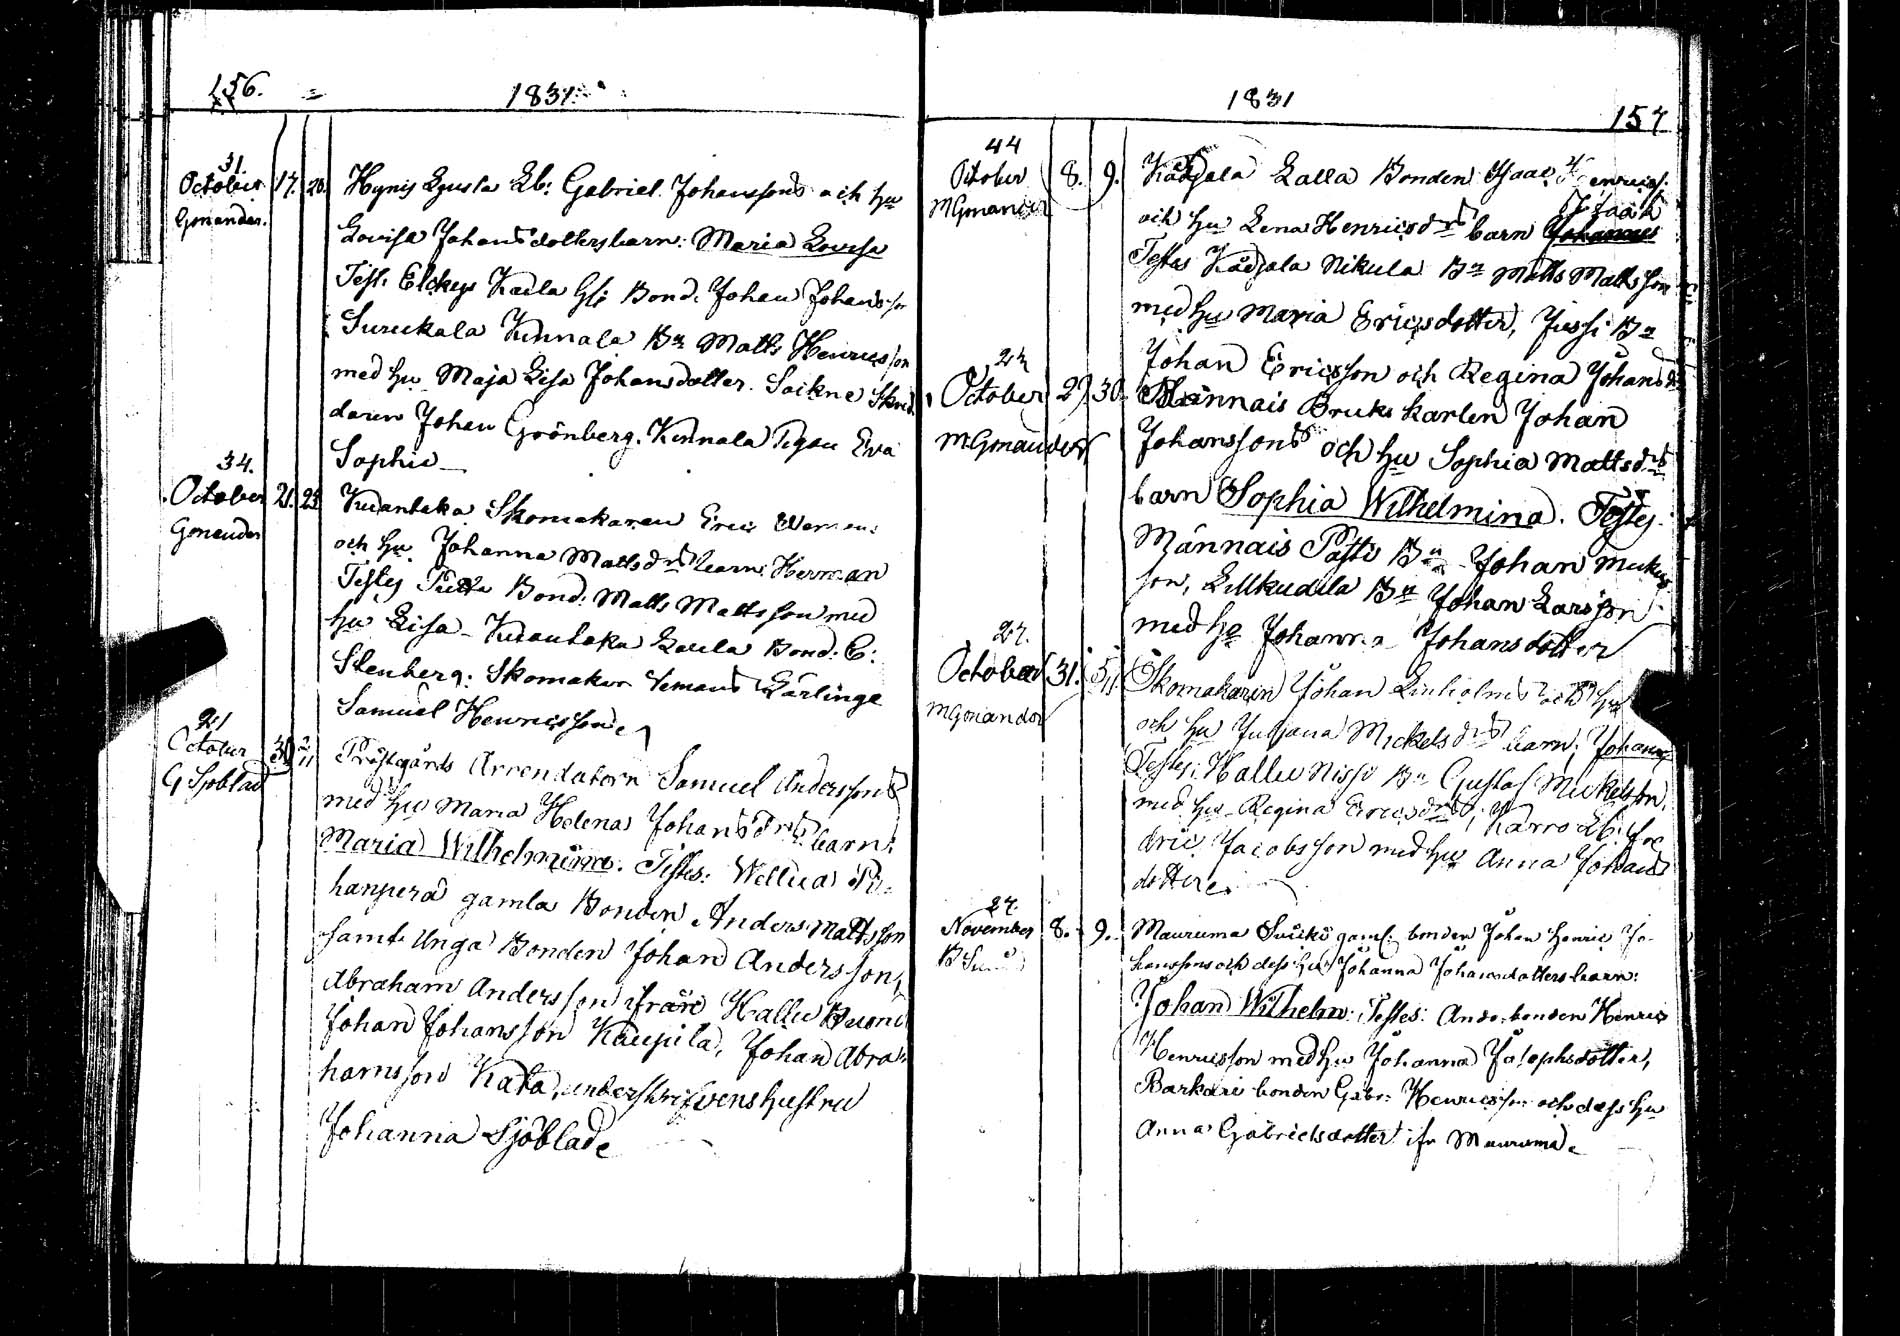 156.
1831.
31.
October 17. 20.
Gonander.
Hynis Eb: Gabriel Johanssons och hu
Lovisa Johansdotters barn: Maria Lovisa
Test: Kaila Bond. Johan Johansson
Kinnala Bn Matts Henricsson
med hu Maja Lisa Johansdotter. Sockne Skred-
daren Johan Grönberg. Kinnala Pigan Eva
Sophie
34.
October 21. 23
Gonander
Skomakaren Eric
och hu Johanna Mattsdrs barn: Herman
Testes Bond: Matts Mattsson med
hu Lisa Bond: E:
Stenberg: Skomakar Lärlinge
Samuel Henricsson
21
October 30 2/11
G Sjöblad
Prästgårds Arrendatorn Samuel Anderssons
med hu Maria Helena Johansdrs barn:
Maria Wilhelmina. Testes:
hanperä gamla Bonden Anders Mattsson
samt Unga Bonden Johan Andersson,
Abraham Andersson ifrån Hallu
Johan Johansson Kaupila, Johan Abra-
hamsson Kata, underskrifvens hustru
Johanna Sjöblad
1831
157
44
October 8. 9.
MGonander
Lalla Bonden Isaac Henrics:
Isaak
och hu Lena Henricsdrs barn Johannes
Testes Nikula Bn Matts Mattsson
med hu Maria Ericsdotter, Jussi Bn
Johan Ericsson och Regina Johansdr
24
October 29. 30.
MGonander
Männais Bruks karlen Johan
Johanssons och hu Sophia Mattsdrs
barn Sophia Wilhelmina. Testes
Männais Bn Johan Mickels
son, Bn Johan Larsson
med hu Johanna Johansdotter
27.
October 31. 5/11
MGonander
Skomakaren Johan Lindholms och hu
och hu Juliana Mickelsdrs barn: Johannes
Testes: Hallu Nissi Bn Gustaf Mickelsson
med hu Regina Ericsdr, Karro Eb: Fre
dric Jacobsson med hu Anna Johans
dotter
27.
November 8. 9.
Mauruma gaml: bonden Johan Henric Jo-
hanssons och dess hu Johanna Johansdotters barn:
Johan Wilhelm: Testes: bonden Henric
Henricsson med hu Johanna Josephsdotter,
Barkari bonden Gabr: Henricsson och dess hu
Anna Gabrielsdotter ifr Mauruma.